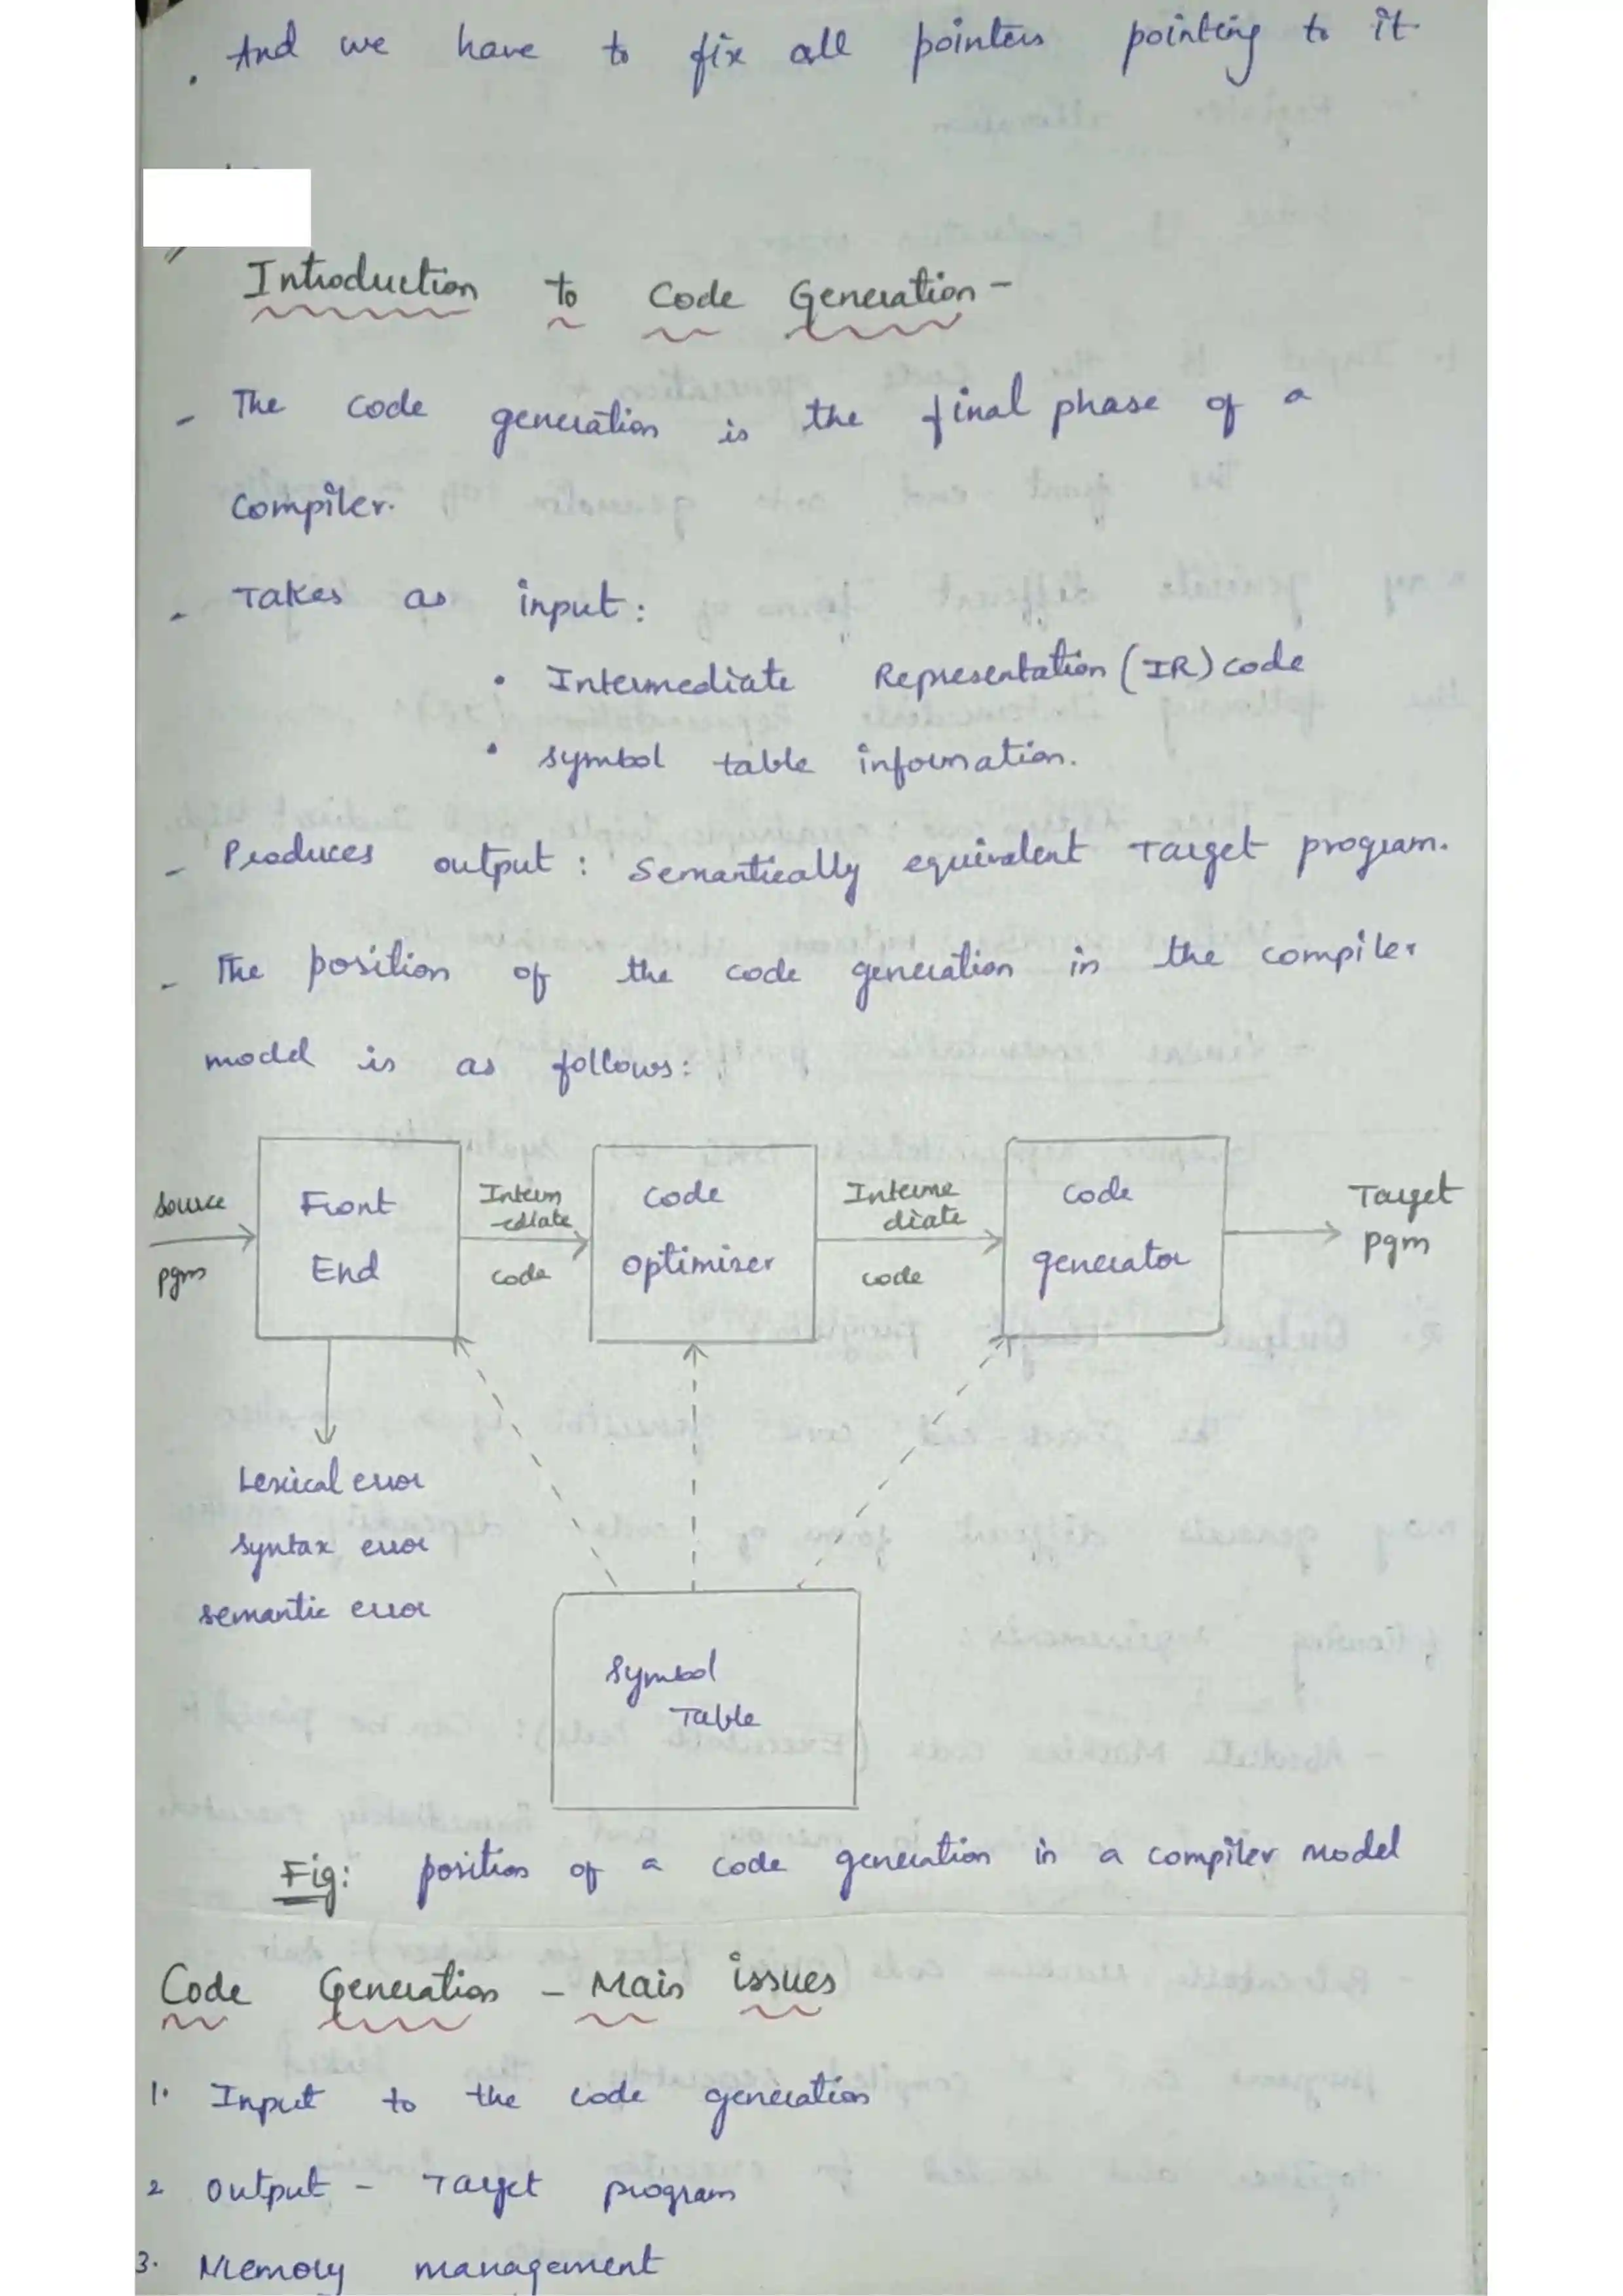 . And we have to fix all pointers pointing to it.
Introduction to Code Generation -
- The code generation is the final phase of a
compiler.
- Takes as input:
• Intermediate Representation (IR) code
• symbol table information.
- Produces output: Semantically equivalent Target program.
- The position of the code generation in the compiler
model is as follows:
source
pgm
Front
End
Interm
-ediate
code
code
optimizer
Interme
diate
code
code
generator
Target
pgm
Lexical error
syntax error
semantic error
symbol
Table
Fig: position of a code generation in a compiler model
Code Generation - Main issues
1. Input to the code generation
2 output - Target program
3. Memory management